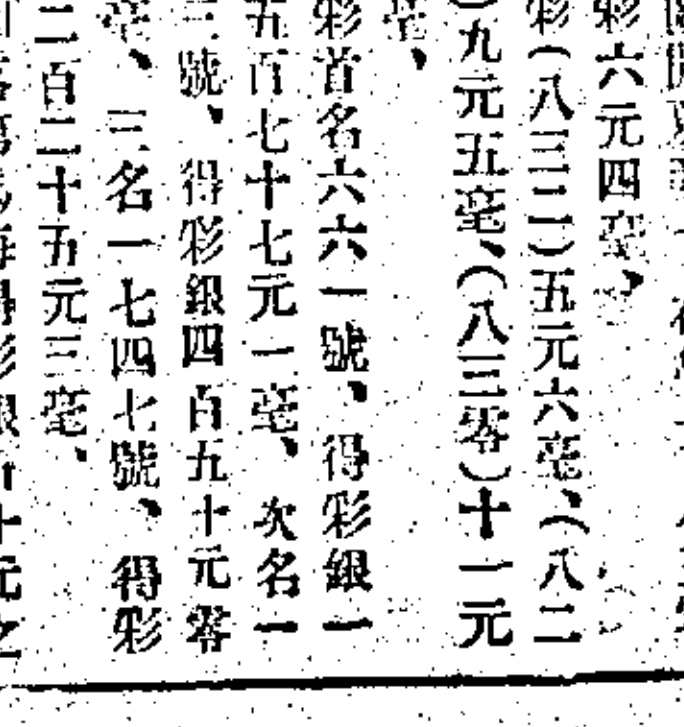 彩六元四毫、
彩（八三二）五元六毫、（八二
）九元五毫、（八三零）十一元
毫、
彩首名六六一號、得彩銀一
五百七十七元一毫、次名一
三號、得彩銀四百五十元零
毫、三名一七四七號、得彩
二百二十五元三毫、
得彩銀百十元之